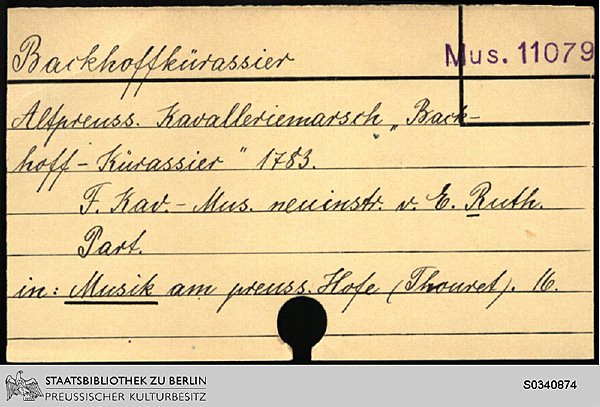 Backhoffkürassier
Mus. 11079
Altpreuss. Kavalleriemarsch „Back-
hoff-Kürassier" 1783.
F. Kav.-Mus. neuinstr. v. E. Ruth.
Part.
in: Musik am preuss. Hofe (Thouret). 16.
STAATSBIBLIOTHEK ZU BERLIN
PREUSSISCHER KULTURBESITZ
S0340874